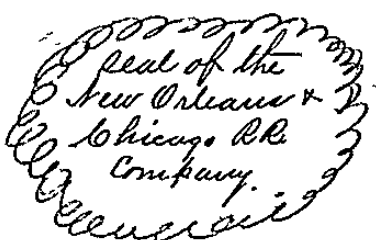 seal of the
New Orleans &
Chicago RR.
Company.